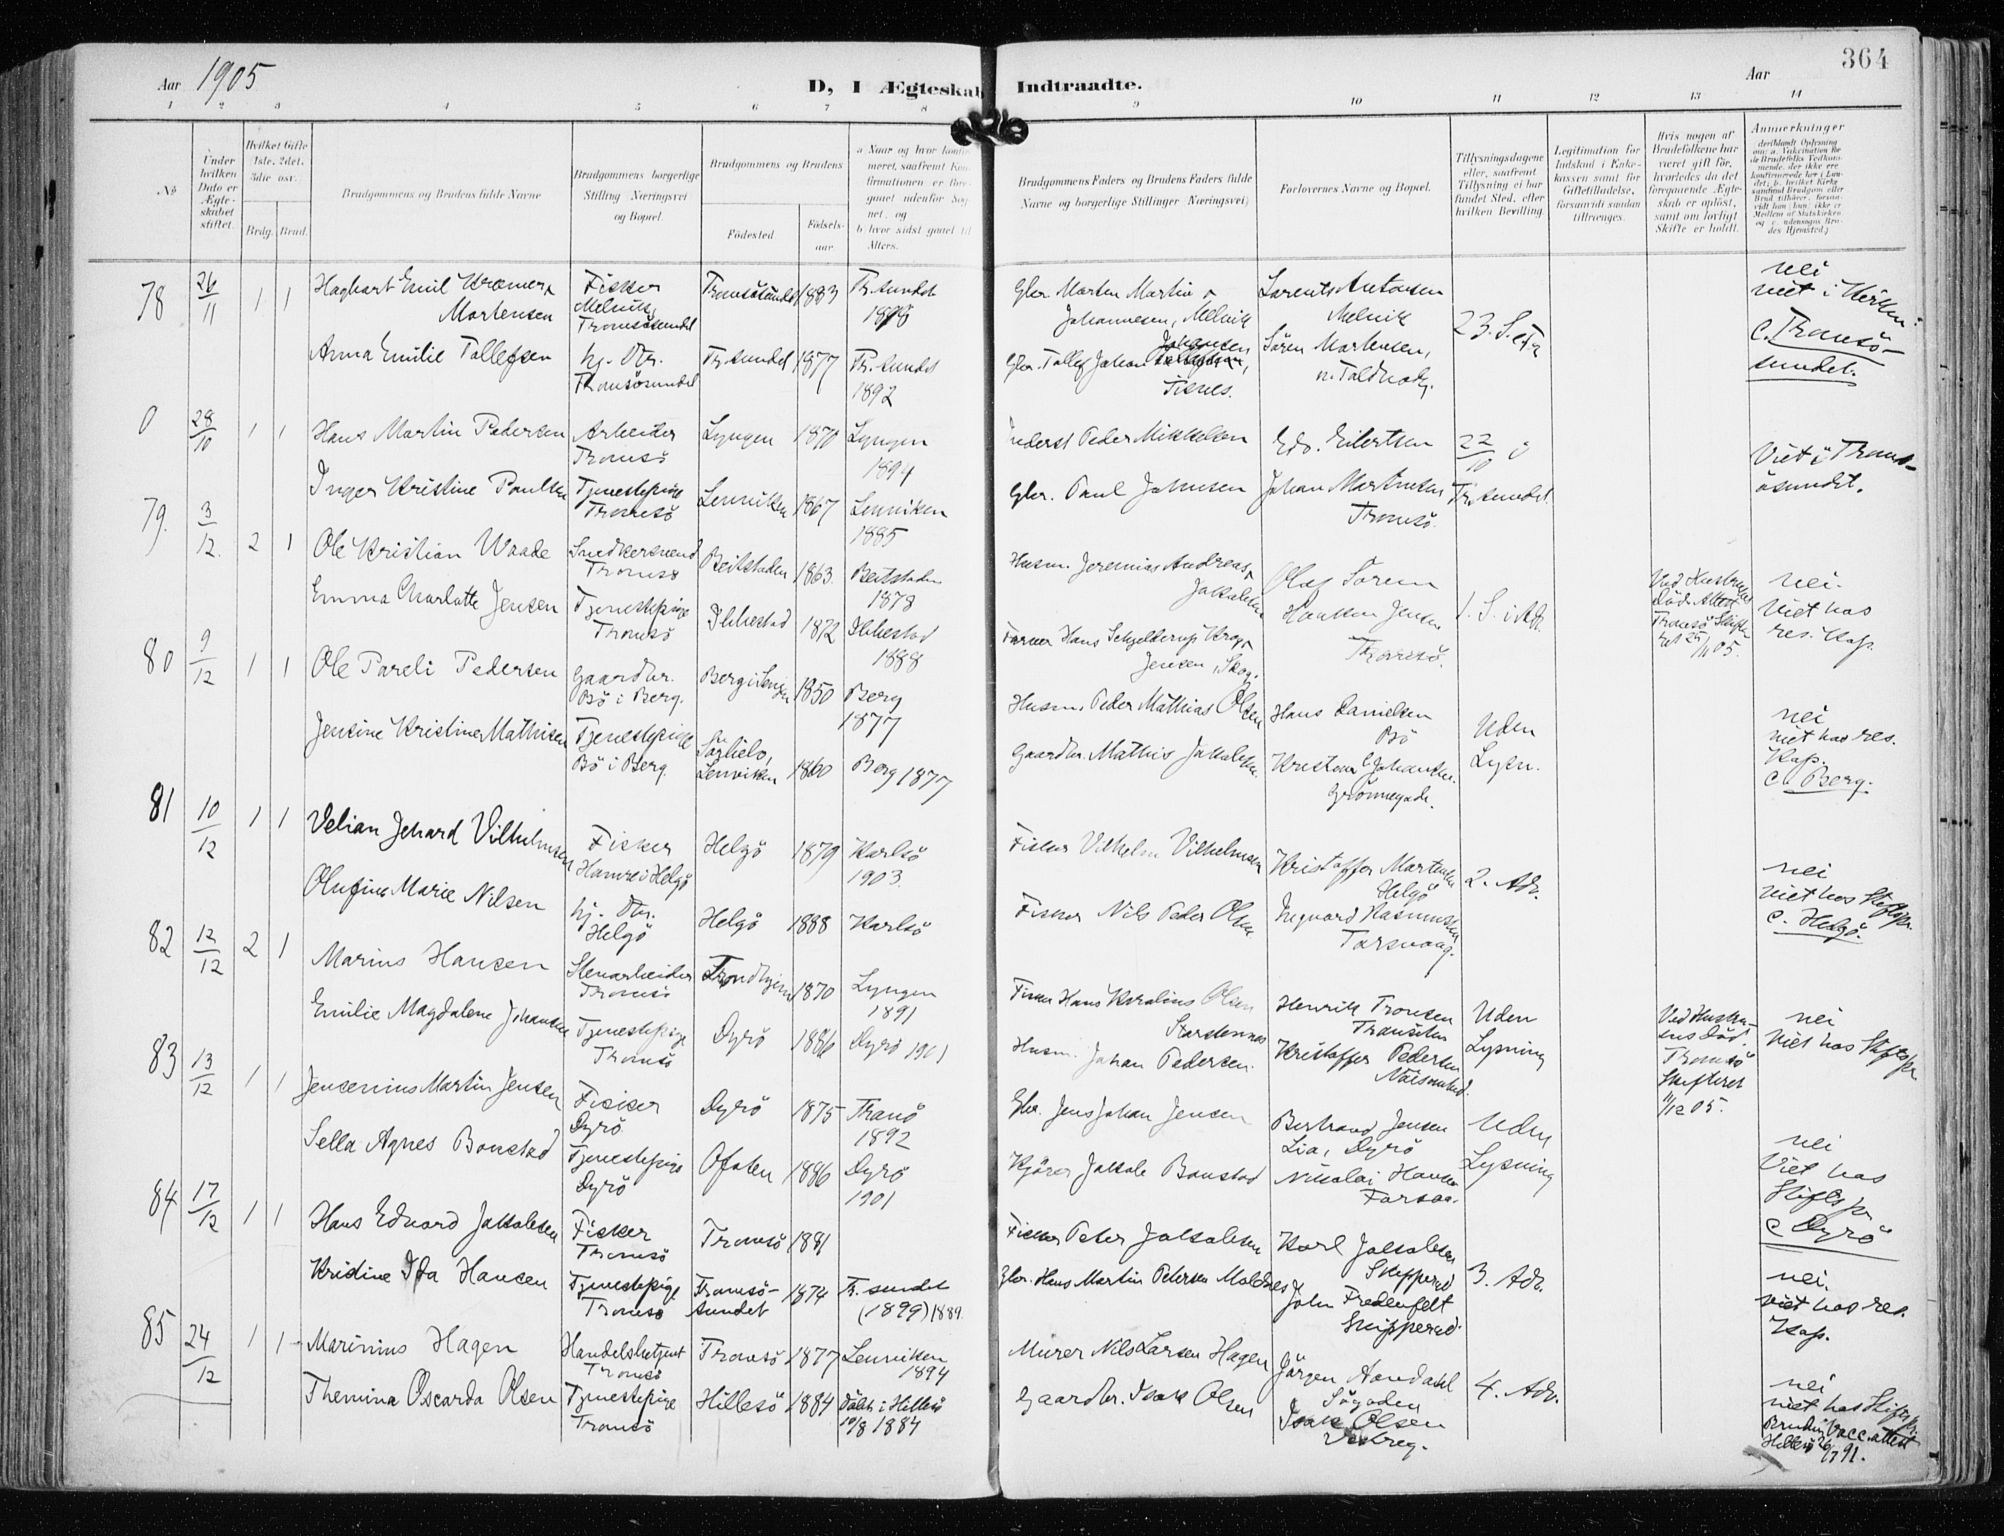 364
Aar 1905
D, I Ægteskab Indtraadte.
Aar
1 2 3 4 5 6 7 8 9 10 11 12 13 14
No
Under hvilken Dato er Ægteskabet stiftet.
Hvilket Gifte 1ste, 2det, 3die osv.
Brdg. Brud.
Brudgommens og Brudens fulde Navne
Brudgommens borgerlige Stilling Næringsvei og Bopæl.
Brudgommens og Brudens
Fødested
Fødselsaar.
Brudgommens Faders og Brudens Faders fulde Navne og borgerlige Stillinger Næringsvei)
Forlovernes Navne og Bopæl.
Tillysningsdagene eller, saafremt Tillysning ei har fundet Sted, efter hvilken Bevilling.
Legitimation for Indskud i Enkekassen samt for Giftetilladelse, forsaavidt saadan tiltrænges.
Hvis nogen af Brudefolkene har været gift før, hvorledes da det foregaaende Ægteskab er opløst, samt om lovligt Skifte er holdt.
Anmærkninger
78 26/11 1 1
Hagbart Emil Kræmer Mortensen
Fisker Melvik, Tromsösundet
Tromsösundet 1883
Tr.sundet
Gbr. Morten Martin Johannesen, Melvik
Lorents Antonsen Melvik
23. S. e Tr
nei
viet i Kirken
C. Tromsösundet.
Anna Emilie Tollefsen
hj. Dtr. Tromsösundet
Tr.sundet 1877
Tr.sundet 1892
Gbr. Tollef Johan Johansen, Tisnes.
Sören Mortensen,
0 28/10 1 1
Hans Martin Pedersen
Arbeider Tromsö
Lyngen 1870
Lyngen 1894
Inderst Peder Mikkelsen
Edv. Eilertsen
22/10
Viet i Tromsösundet.
Inger Kristine Paulsen
Tjenestepige Tromsö
Lenviken 1867
Lenviken 1885
Gbr. Paul Johnsen
Johan Martinsen Tromsö.
Tr.sundet
79. 3/12. 2 1
Ole Kristian Waade
Snedkersvend Tromsö
Beitstaden 1863.
Beitstaden 1878
Husm. Jeremias Andreas Jakobsen
Olaf Sörem
1. S. i Adv.
Tromsö
nei.
Viet hos res. Kap.
Emma Charlotte Jensen
Tjenestepige Tromsö
Ibbestad 1872
Ibbestad 1888
Hans Schjelderup Krog Jensen, Skog.
Haakon Jensen Tromsö.
80 9/12 1 1
Ole Pareli Pedersen
Gaardbr. Bö i Berg.
Berg i Senjen 1850
Berg 1877
Husm. Peder Mathias Olsen
Hans Danielsen Bö
Uden Lysn.
nei
viet hos res. Kap.
C. Berg.
Jensine Kristine Mathisen
Tjenestepige Bö i Berg.
Lenviken 1860
Berg 1877
Gaardbr. Mathis Jakobsen
Grönnegade.
81 10/12 1 1
Velian Jehard Vilhelmsen
Fisker Hamre i Helgö
Helgö 1879
Karlsö 1903.
Fisker Vilhelm Vilhelmsen
Kristoffer Martensen Helgö
2. Adv.
nei
viet hos Stiftspr.
C. Helgö.
Olufine Marie Nilsen
hj. Dtr. Helgö
Helgö 1888
Karlsö
Fisker Nils Peder Olsen
Ingvard Rasmussen Torsvaag.
82 12/12 2 1
Marius Hansen
Stenarbeider Tromsö
Trondhjem 1870
Lyngen 1891
Fisker Hans Kornelius Olsen Storstennes
Henrik Tronsen
Uden Lysning
Ved Hustruens Död.
Tromsö Skifteret
11/12 05.
nei
Viet hos Stiftspr
Emilie Magdalene Johansen
Tjenestepige Tromsö
Dyrö 1886
Dyrö 1901
Husm. Johan Pedersen.
Kristoffer Pedersen
83 13/12 1 1
Jensenius Martin Jensen
Fisker Dyrö
Dyrö 1875
Tranö 1892
Gbr. Jens Johan Jensen
Bertrand Jensen Lia, Dyrö
Uden Lysning
nei
Viet hos Stiftspr
C Dyrö
Sella Agnes Bonstad
Tjenestepige Dyrö
Ofoten 1886
Dyrö 1901
Jakob Bonstad
Nikolai Hansen
84 17/12 1 1
Hans Edvard Jakobsen
Fisker Tromsö
Tromsö 1881
Fisker Peter Jakobsen
Karl Jakobsen Skippergd
3. Adv.
nei.
viet hos res. Kap.
Kristine Ida Hansen
Tjenestepige Tromsö
Tromsösundet 1874
Tr.sundet (1899) 1889.
Gbr. Hans Martin Petersen Moldnes
John Fredenfelt Skippergd.
85 24/12 1 1
Marinius Hagen
Handelsbetjent Tromsö
Tromsö 1877
Lenviken 1894
Murer Nils Larsen Hagen
Jörgen Aandahl Sögaden
4. Adv.
nei
viet hos Stiftspr.
Brudens Vacc.attest
Hillesö 26/7 91.
Themina Oscarda Olsen
Tjenestepige Tromsö
Hillesö 1884
Döbt i Hillesö 10/8 1884
Gaardbr. Isak Olsen
Isak Olsen Vestreg.